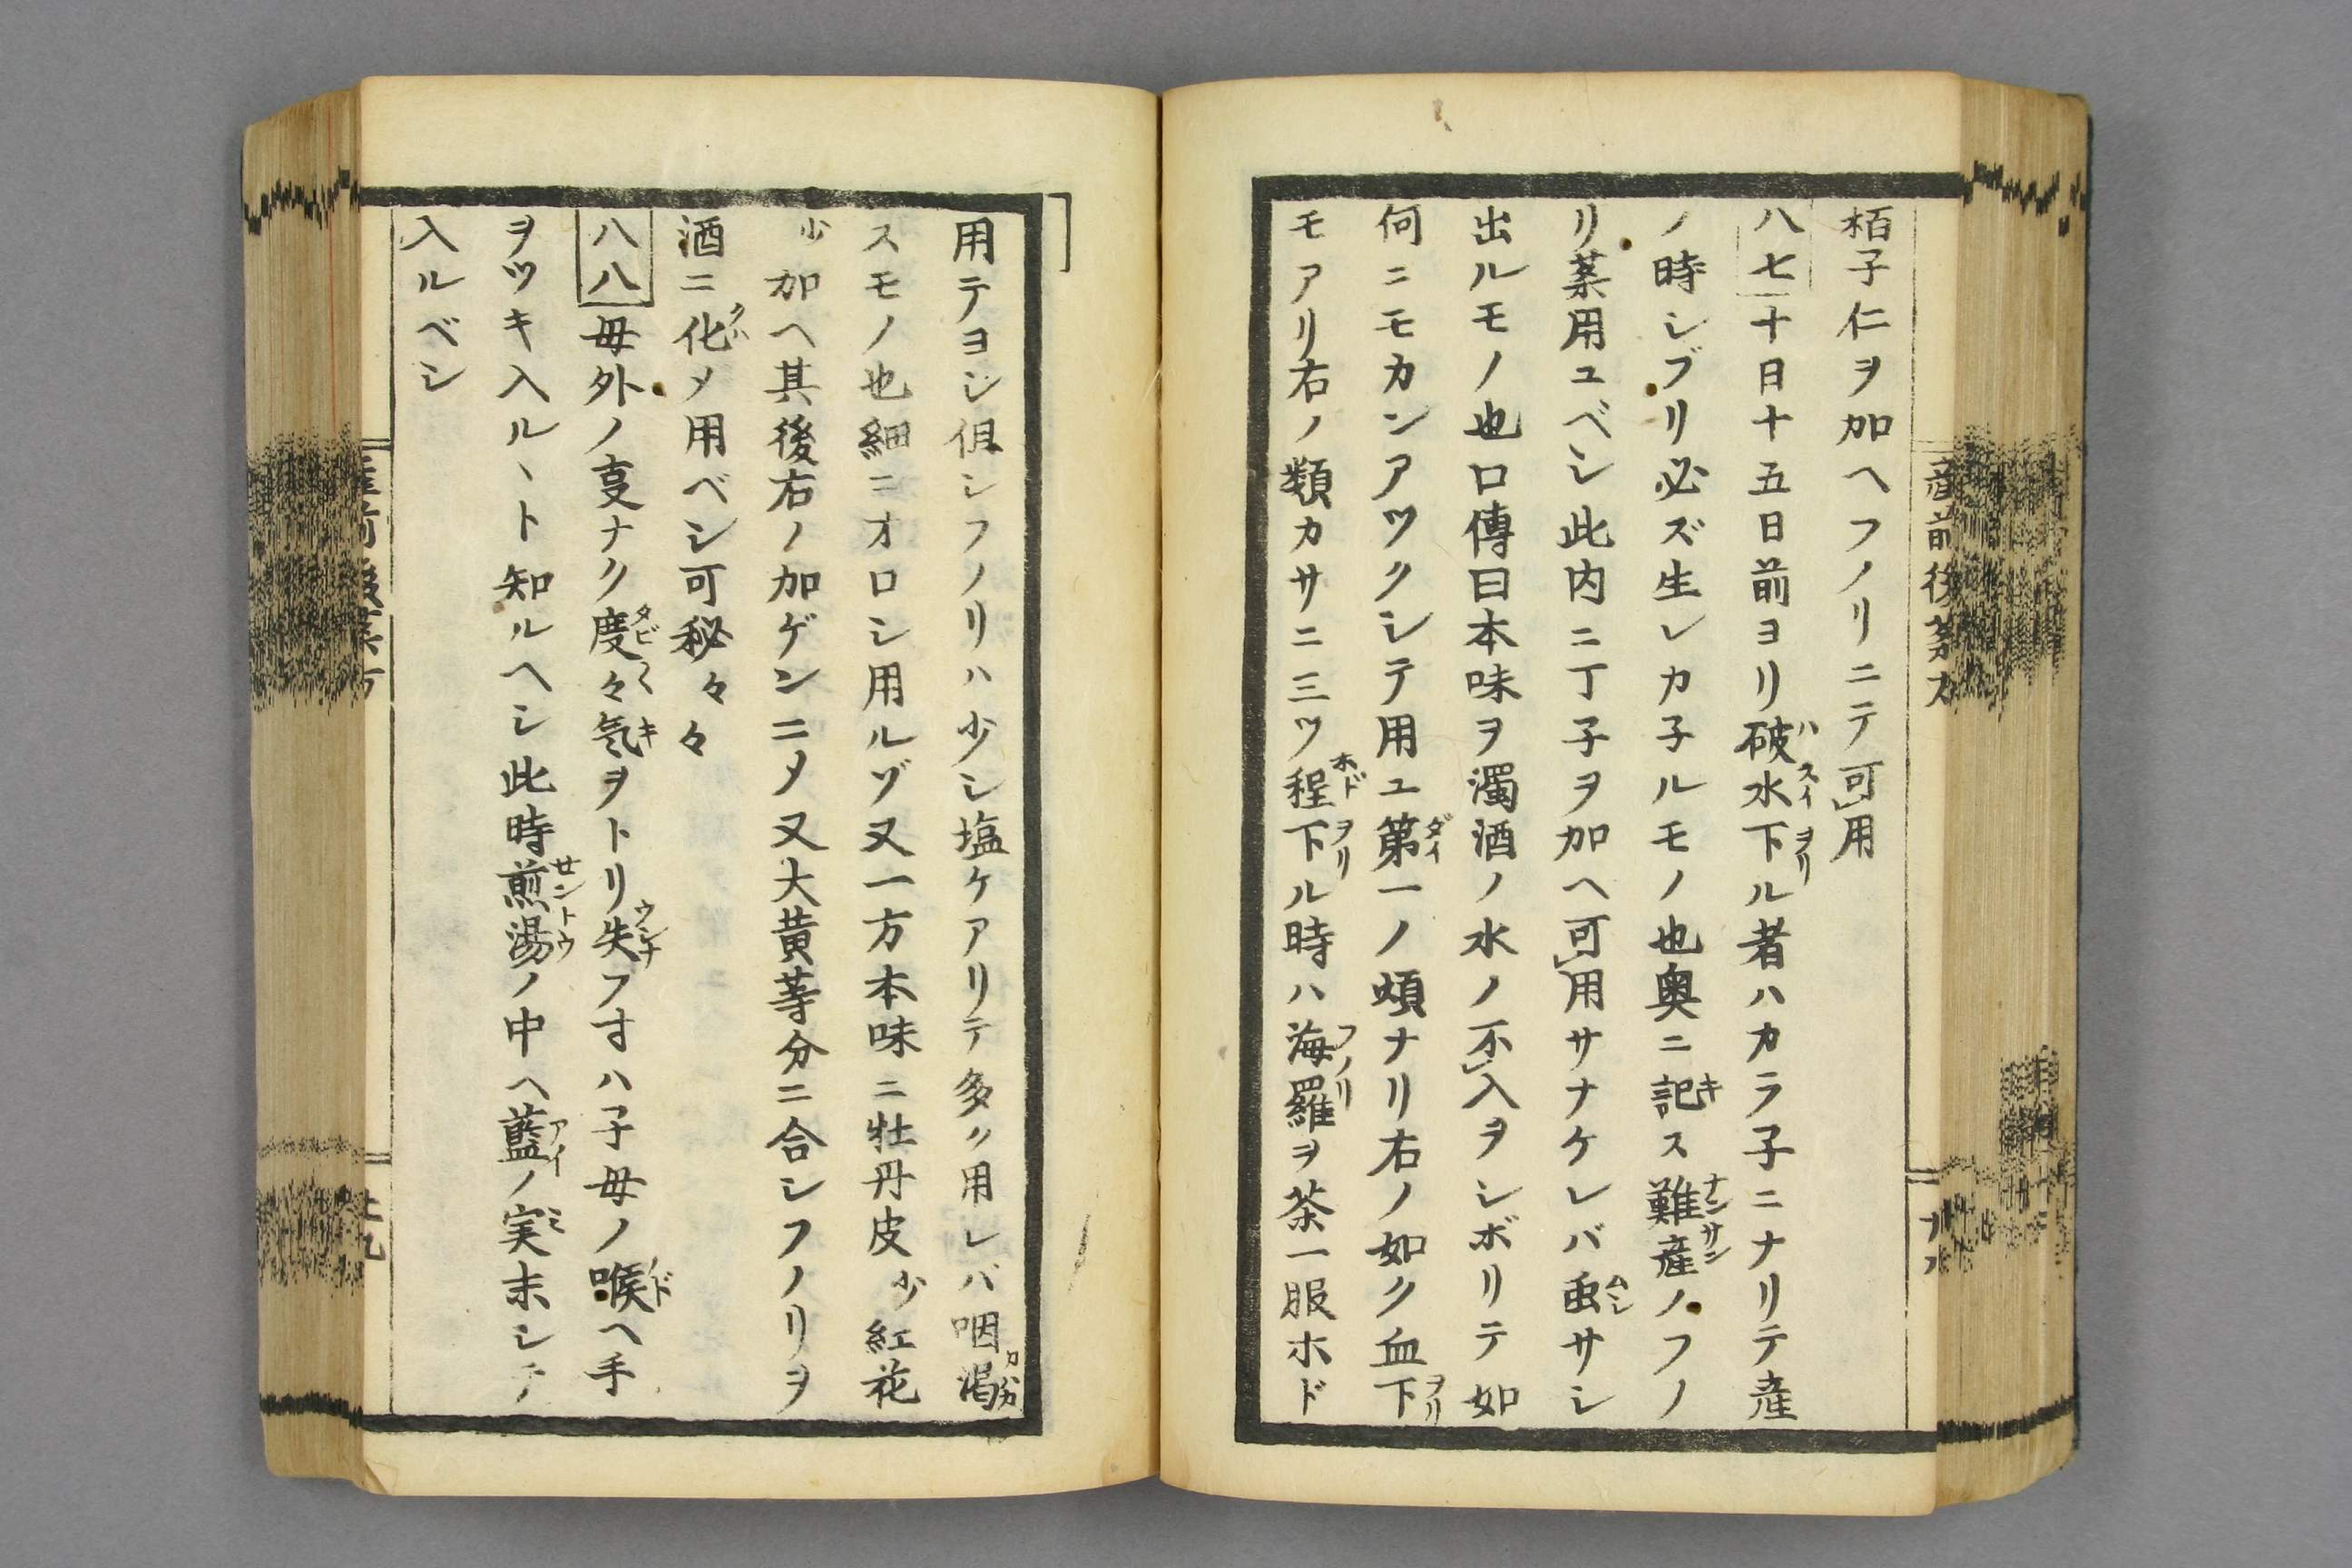 栢子仁ヲ加ヘフノリニテ可用
八七十日十五日前ヨリ破水下ル者ハカラ子ニナリテ産
ノ時シブリ必ズ生レカ子ルモノ也奥ニ記ス難産ノフノ
リ薬用ユベシ此内ニ丁子ヲ加ヘ可用サナケレバ虫サシ
出ルモノ也口傳曰本味ヲ濁酒ノ水ノ不入ヲシボリテ如
何ニモカンアツクシテ用ユ第一ノ煩ナリ右ノ如ク血下
モアリ右ノ類カサニ三ツ程下ル時ハ海羅ヲ茶一服ホド
用テヨシ但シフノリハ少シ塩ケアリテ多ク用レバ咽渇
スモノ也細ニオロシ用ルゾ又一方本味ニ牡丹皮少紅花
少加ヘ其後右ノ加ゲンニメ又大黄等分ニ合シフノリヲ
酒ニ化メ用ベシ可秘々々
八八母外ノ叓ナク度々気ヲトリ失フ寸ハ子母ノ喉ヘ手
ヲツキ入ルヽト知ルヘシ此時煎湯ノ中ヘ藍ノ実末シテ
入ルベシ
産前後薬方